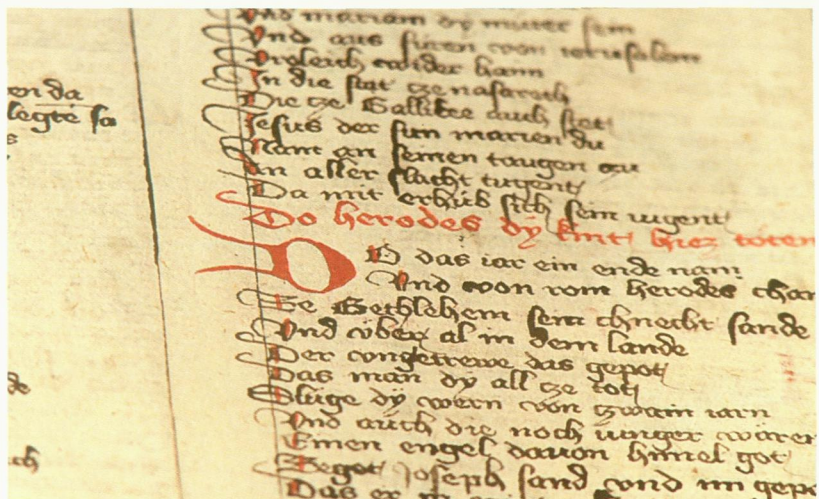 en da
legte so
Vnd mariam dy muter sein
Vnd aus furen von ierusalem
Froleich wider haim
In die stat ze nasareth
Die ze Gallilee auch stet
Jesus der sun marien du
Nam an seinen tougen zu
An aller slacht tugent
Da mit erhub sich sein iugent
Do herodes dy kint hiez toten
DO das iar ein ende nam
Vnd von rom herodes cham
Ze Bethlehem sein chnecht sande
Vnd vber al in dem lande
Der vngetrewe das gepot
Das man dy all ze tot
Sluge dy wern von zwain iarn
Vnd auch die noch iunger waren
Einen engel davon himel got
Zegot Joseph sand vnd im gepo
Das er